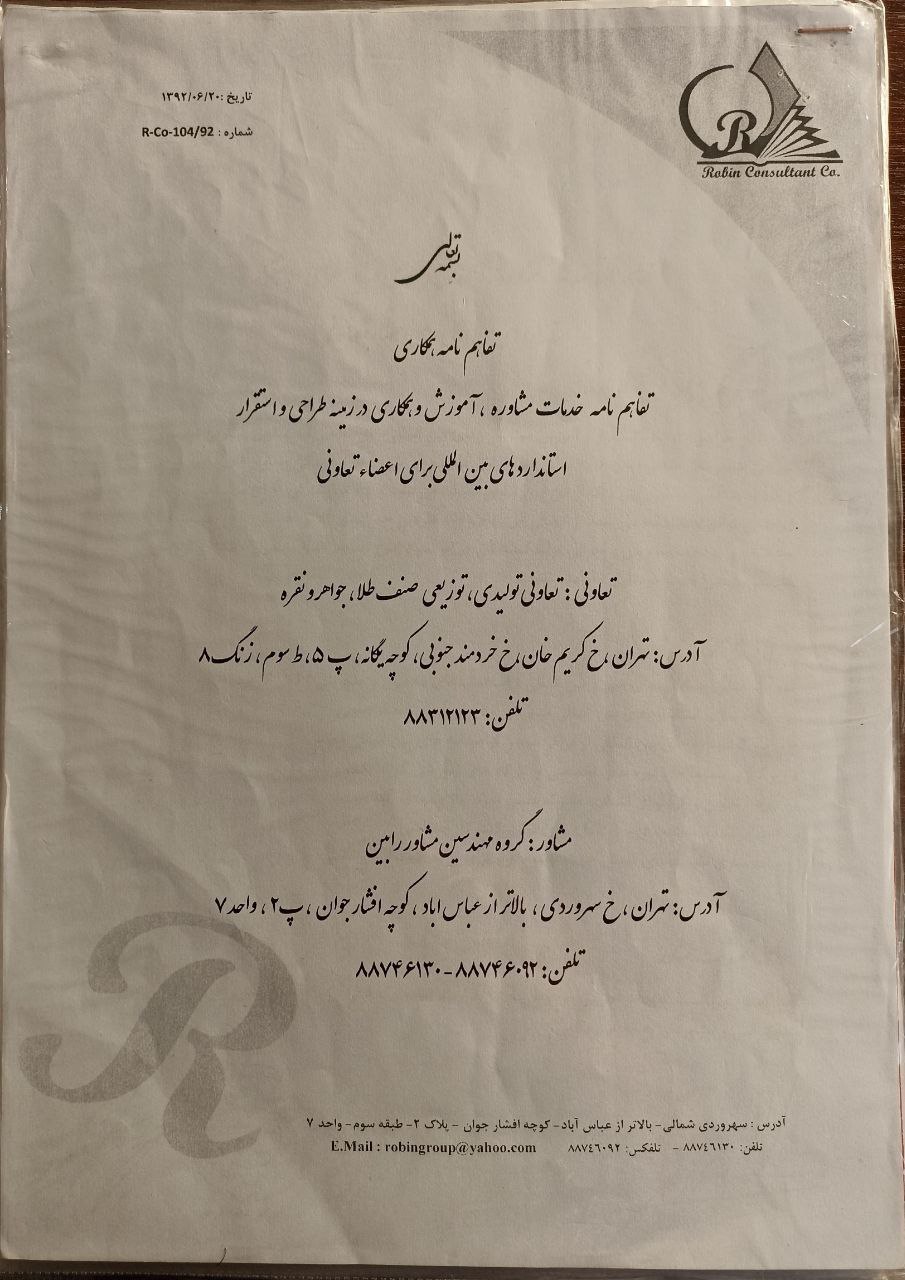 تاریخ :۱۳۹۲/۰۶/۲۰
شماره : R-Co-104/92
R
Robin Consultant Co.
بسمه تعالی
تفاهم نامه همکاری
تفاهم نامه خدمات مشاوره ، آموزش و همکاری در زمینه طراحی و استقرار
استانداردهای بین المللی برای اعضاء تعاونی
تعاونی : تعاونی تولیدی، توزیعی صنف طلا، جواهر و نقره
آدرس: تهران ، خ کریم خان، خ خردمند جنوبی، کوچه یگانه، پ ۵، ط سوم، زنگ ۸
تلفن: ۸۸۳۱۲۱۲۳
مشاور : گروه مهندسین مشاور رابین
آدرس: تهران ، خ سهروردی ، بالاتر از عباس اباد ، کوچه افشار جوان ، پ۲ ، واحد ۷
تلفن: ۸۸۷۴۶۰۹۲ - ۸۸۷۴۶۱۳۰
R
آدرس : سهروردی شمالی - بالاتر از عباس آباد- کوچه افشار جوان - پلاک ۲- طبقه سوم- واحد ۷
تلفن: ۸۸۷٤٦۱۳۰ - تلفکس: ۸۸۷٤٦۰۹۲ E.Mail : robingroup@yahoo.com